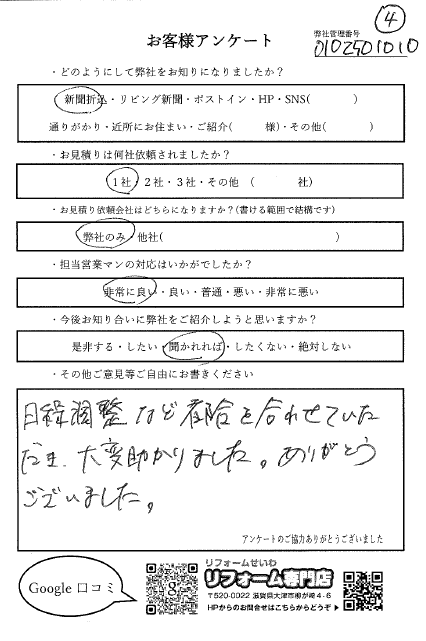 ④
お客様アンケート
弊社管理番号
0102501010
・どのようにして弊社をお知りになりましたか？
新聞折込・リビング新聞・ポストイン・HP・SNS(　　　)
通りがかり・近所にお住まい・ご紹介(　　　様)・その他(　　　)
・お見積りは何社依頼されましたか？
1社・2社・3社・その他　(　　　社)
・お見積り依頼会社はどちらになりますか？(書ける範囲で結構です)
弊社のみ・他社(　　　)
・担当営業マンの対応はいかがでしたか？
非常に良い・良い・普通・悪い・非常に悪い
・今後お知り合いに弊社をご紹介しようと思いますか？
是非する・したい・聞かれれば・したくない・絶対しない
・その他ご意見等ご自由にお書きください
日程調整など都合を合わせていた
だき、大変助かりました。ありがとう
ございました。
アンケートのご協力ありがとうございました
Google 口コミ
リフォームせいわ
リフォーム専門店
〒520-0022 滋賀県大津市柳が崎4-6
HPからのお問合せはこちらからどうぞ▶